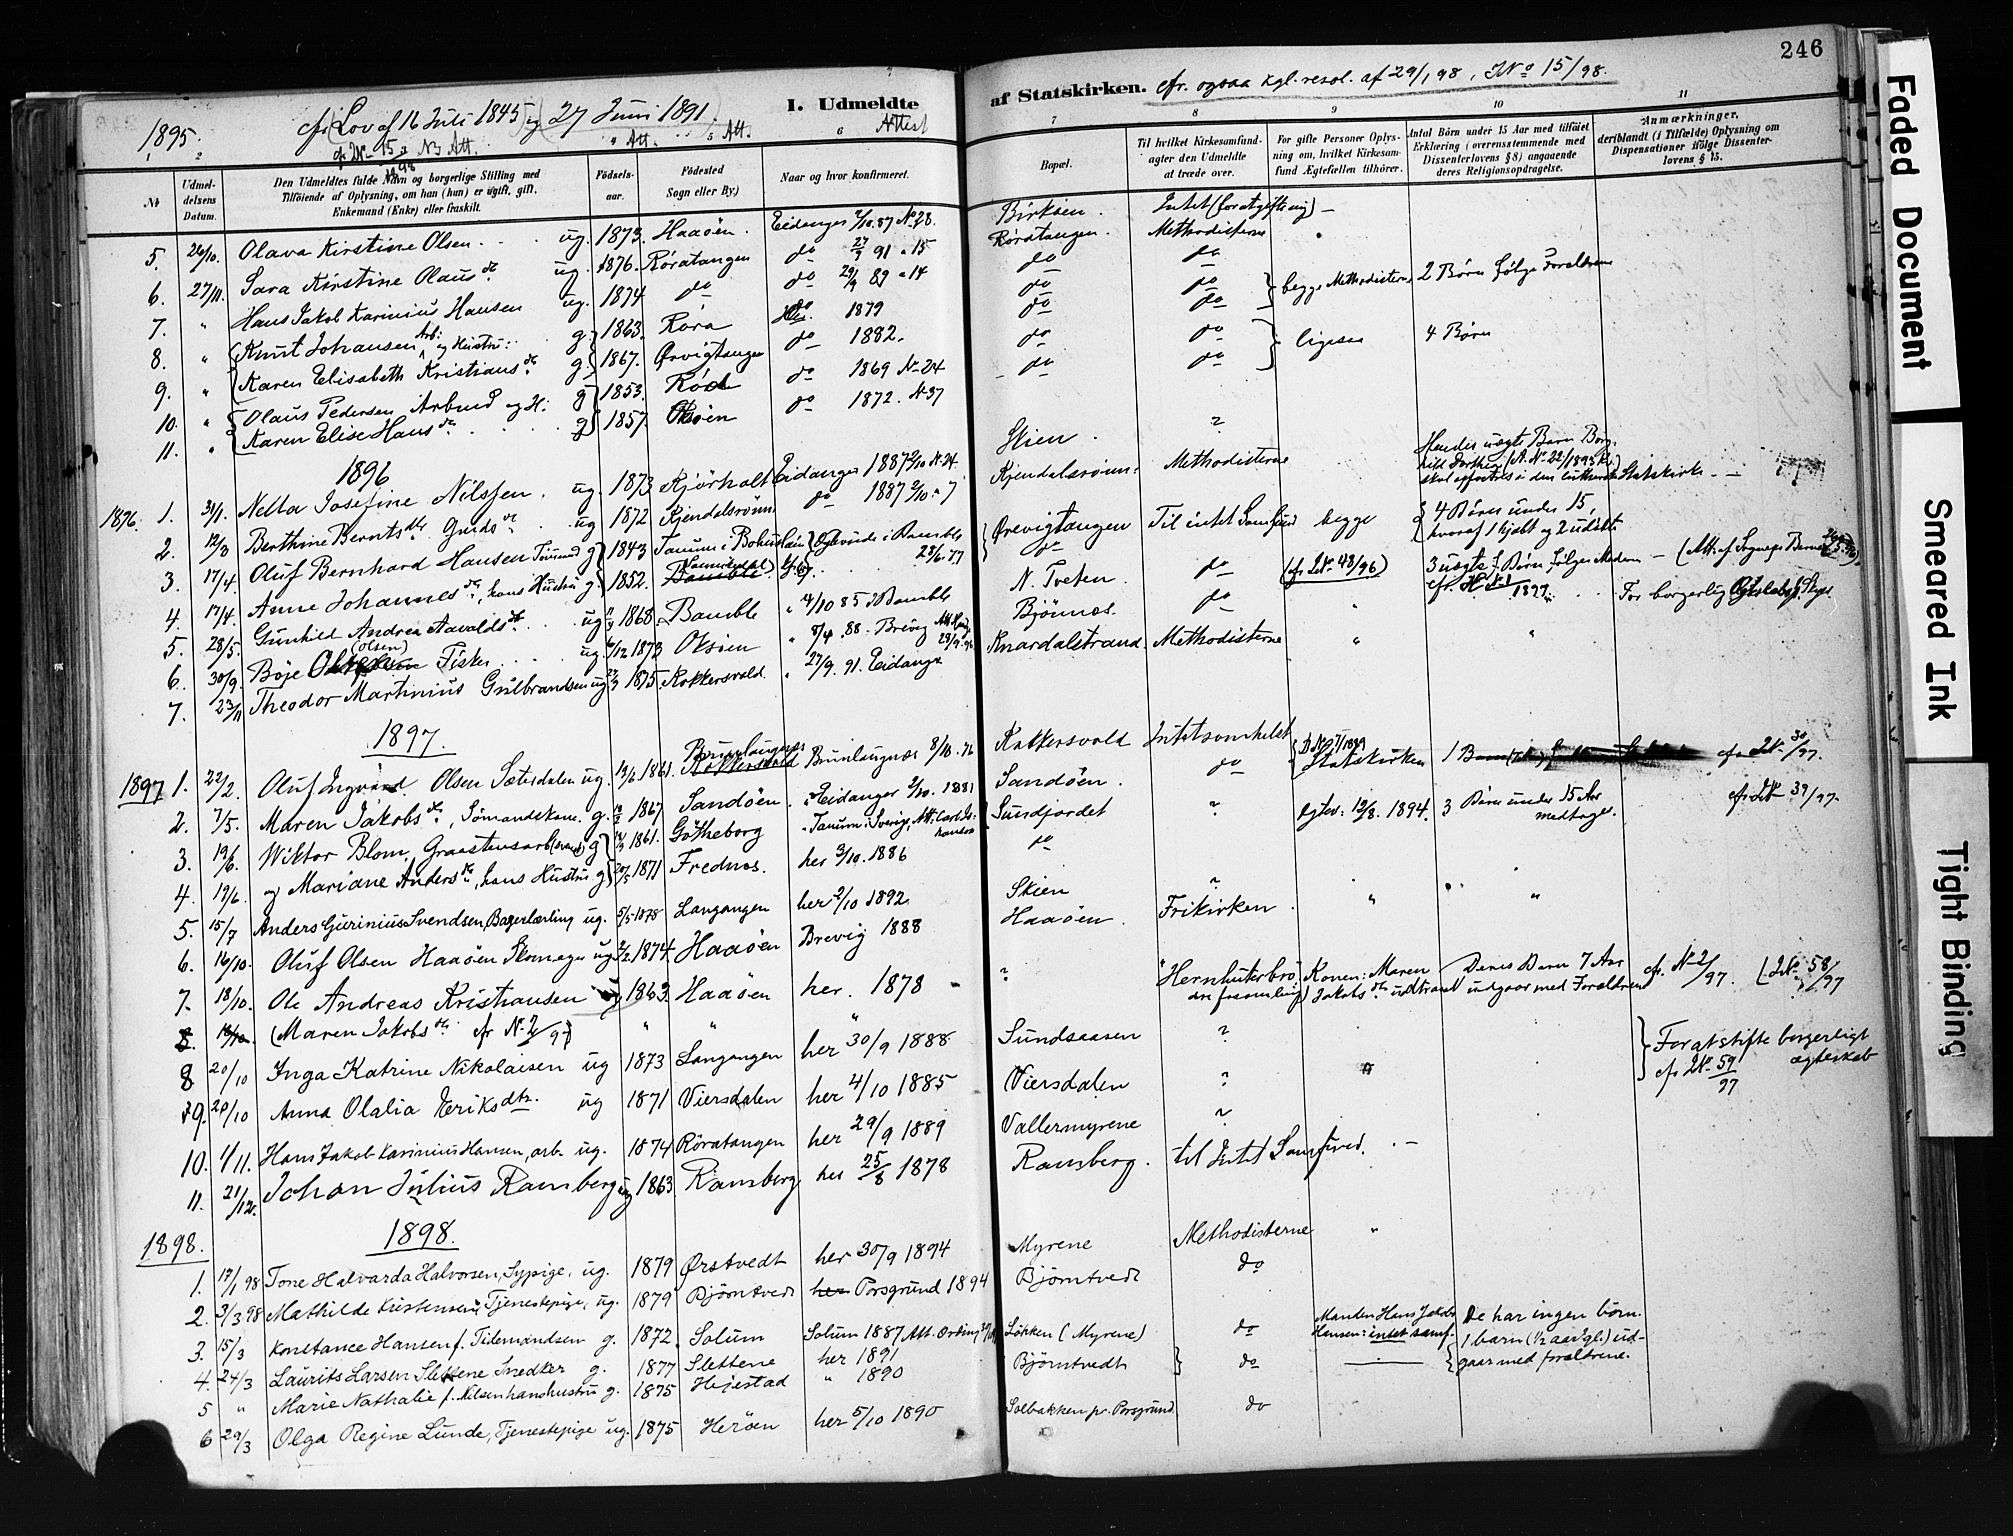 246
1895.
cfr. (Lov af 16 Juli 1845) og (27 Juni 1891)
I. Udmeldte
af Statskirken. cfr. ogsaa kgl. resol. af 29/1 98, JNo 15/98.
No
Udmeldelsens Datum.
Den Udmeldtes fulde Navn og borgerlige Stilling med Tilføiende af Oplysning, om han (hun) er ugift, gift, Enkemand (Enke) eller fraskilt.
Fødselsaar.
Fødested Sogn eller By)
Naar og hvor konfirmeret.
Attest
7
8
9
10
11
Bopæl.
Til hvilket Kirkesamfund agter den Udmeldte at træde over.
For gifte Personer Oplysning om, hvilket Kirkesamfund Ægtefællen tilhører.
Antal Børn under 15 Aar med tilføiet Erklæring (overensstemmende med Dissenterlovens § 8) angaaende deres Religionsopdragelse.
Anmærkninger, deriblandt (i Tilfælde) Oplysning om Dispensationer ifølge Dissenterlovens § 15.
5. 26/10. Olava Kirstine Olsen. ug. 1873. Haaöen. Eidanger 2/10.87 No 28. Birköen. Intet
6. 27/11. Sara Kirstine Olausdr. ug. 1876. Röratangen do 91 " 15 Röratangen. Methodisterne
7. " Hans Jakob Karinius Hansen ug. 1874 do do 29/9 89 " 14 do do
8. " Knut Johansen Arb. og Hustru: g. 1863. Röra do 1879 do do begge Methodisterne 2 Børn følge Forældrene
9. " Karen Elisabeth Kristiansdr. g. 1867. Ørvigtangen do 1882. do do
10. " Olaus Pedersen Arbmd og H: g 1853. Röd do 1869 No 24 do do ligesaa 4 Børn
11. " Karen Elise Hansdr. g 1857. Oksöen do 1872. No 37 do do
1896
1896. 1. 31/1. Netta Josefine Nilssen. ug. 1873 Kjörholt Eidanger 1887 2/10 No 24. Skien. ?
2. 12/3 Berthine Berntsdtr. Gundsdr. ug 1872 Kjendalsrönn. do 1887 2/10 " 7 Kjendalsrönn. Methodisterne Hendes uægte Barn skal opfostres i den lutherske Statskirke
3. 17/4. Oluf Bernhard Hansen Tömmd g 1843 Tanum i Bohuslän Ørevigtangen Til intet Samfund begge 4 Børn under 15, hvoraf 1 hjabt og 2 udöbte
4. 17/4. Anne Johannesdr., hans Hustru g. 1852. Bamble do
5. 28/5. Gunhild Andrea Aavaldsdr. ug 1868. Bamble 4/10 85 i Bamble N. Tveten. do (cfr JNo. 48/96) 3 uægte Børn følger Moderen
6. 30/9. Böje (Olsen) Fisker ug. 1873 Oksöen " 8/4. 88. Brevig Björnnes. do " For borgerlig
7. 23/11 Theodor Martinius Gulbrandsen ug 1875. Kokkersvold. " 27/9. 91. Eidanger Knardalstrand Methodisterne " "
1897.
1897 1. 22/2. Oluf Ingvard. Olsen Sætersdalen ug. 1861. Brunlaugnes Brunlaugnæs 8/10. 76 Kokkersvold Intetsomhelst cfr JNo. 30/97.
2. 7/5. Maren Jakobsdr., Sömandskone. g. 1867 Sandöen. " Eidanger 2/10. 1881 Sandöen. do Statskirken 1 Barn
3. 19/6. Wiktor Blom, Graastensarb. g 1861. Götheborg Tanum i Sverig, Sundfjordet " Egtev: 12/8. 1894. 3 Børn under 15 Aar medtages. cfr JNo 39/97.
4. 19/6. og Mariane Andersdr., hans Hustru g 1871 Frednes. her 3/10. 1886 do
5. 15/7 Anders Gurinius Svendsen, Bagerlærling ug. 5/5 1878 Langangen her 2/10 1892. Skien ? " "
6. 16/10. Oluf Olsen Haaöen Skomager ug 1874 Haaöen Brevig 1888 Haaöen. Frikirken.
7. 18/10. Ole Andreas Kristiansen 1863 Haaöen her. 1878 " Hernhuterbrödreforsamling Konen: Maren Jakobsdr. udtraadt Deres Barn 7 Aar udgaar med Forældrene cfr. No 2/97. (JNo. 58/97
8. 18/10. (Maren Jakobsdr. cfr No 2/97) " "
8 20/10 Inga Katrine Nikolaisen ug 1873 Langangen her 30/9 1888 Sundsaasen ? Foratstifte borgerligt ægteskab cfr JNo 59/97
9. 20/10 Anna Olalia Eriksdtr. ug 1871 Viersdalen her 4/10 1885 Viersdalen ? "
10. 1/11. Hans Jakob Karinius Hansen, arb. ug. 1874 Röratangen her 29/9 1889 Vallermyrene ?
11. 21/12. Johan Julius Ramberg ug 1863 Ramberg her 25/8 1878 Ramberg. til Intet Samfund.
1898.
1898.
1. 17/1 98 Tone Halvarda Halvorsen, Sypige, ug. 1879 Ørstvedt her 30/9 1894 Myrene Methodisterne "
2. 3/3 98 Mathilde Kristensen, Tjenestepige, ug. 1879 Björntvedt her Porsgrund 1894 Björntvedt do
3. 15/3 Konstance Hansen f. Tidemandsen g. 1872. Solum Solum 1887. Att. Løkken (Myrene) do Manden Hans Jakob Hansen: intet samf. De har ingen børn.
4. 24/3 Laurits Larsen Slettene Snedker g. 1877 Slettene her 1891 Björntvedt do 1 barn (1/2 aar gl.) udgaar med forældrene.
5 " Marie Nathalie f. Nilsen hans hustru g. 1875 Heiestad " 1890
6 29/3 Olga Regine Lunde, Tjenestepige ug. 1875 Heröen her 5/10 1890 Solbakken pr. Porsgrund do
Faded Document
Smeared Ink
Tight Binding